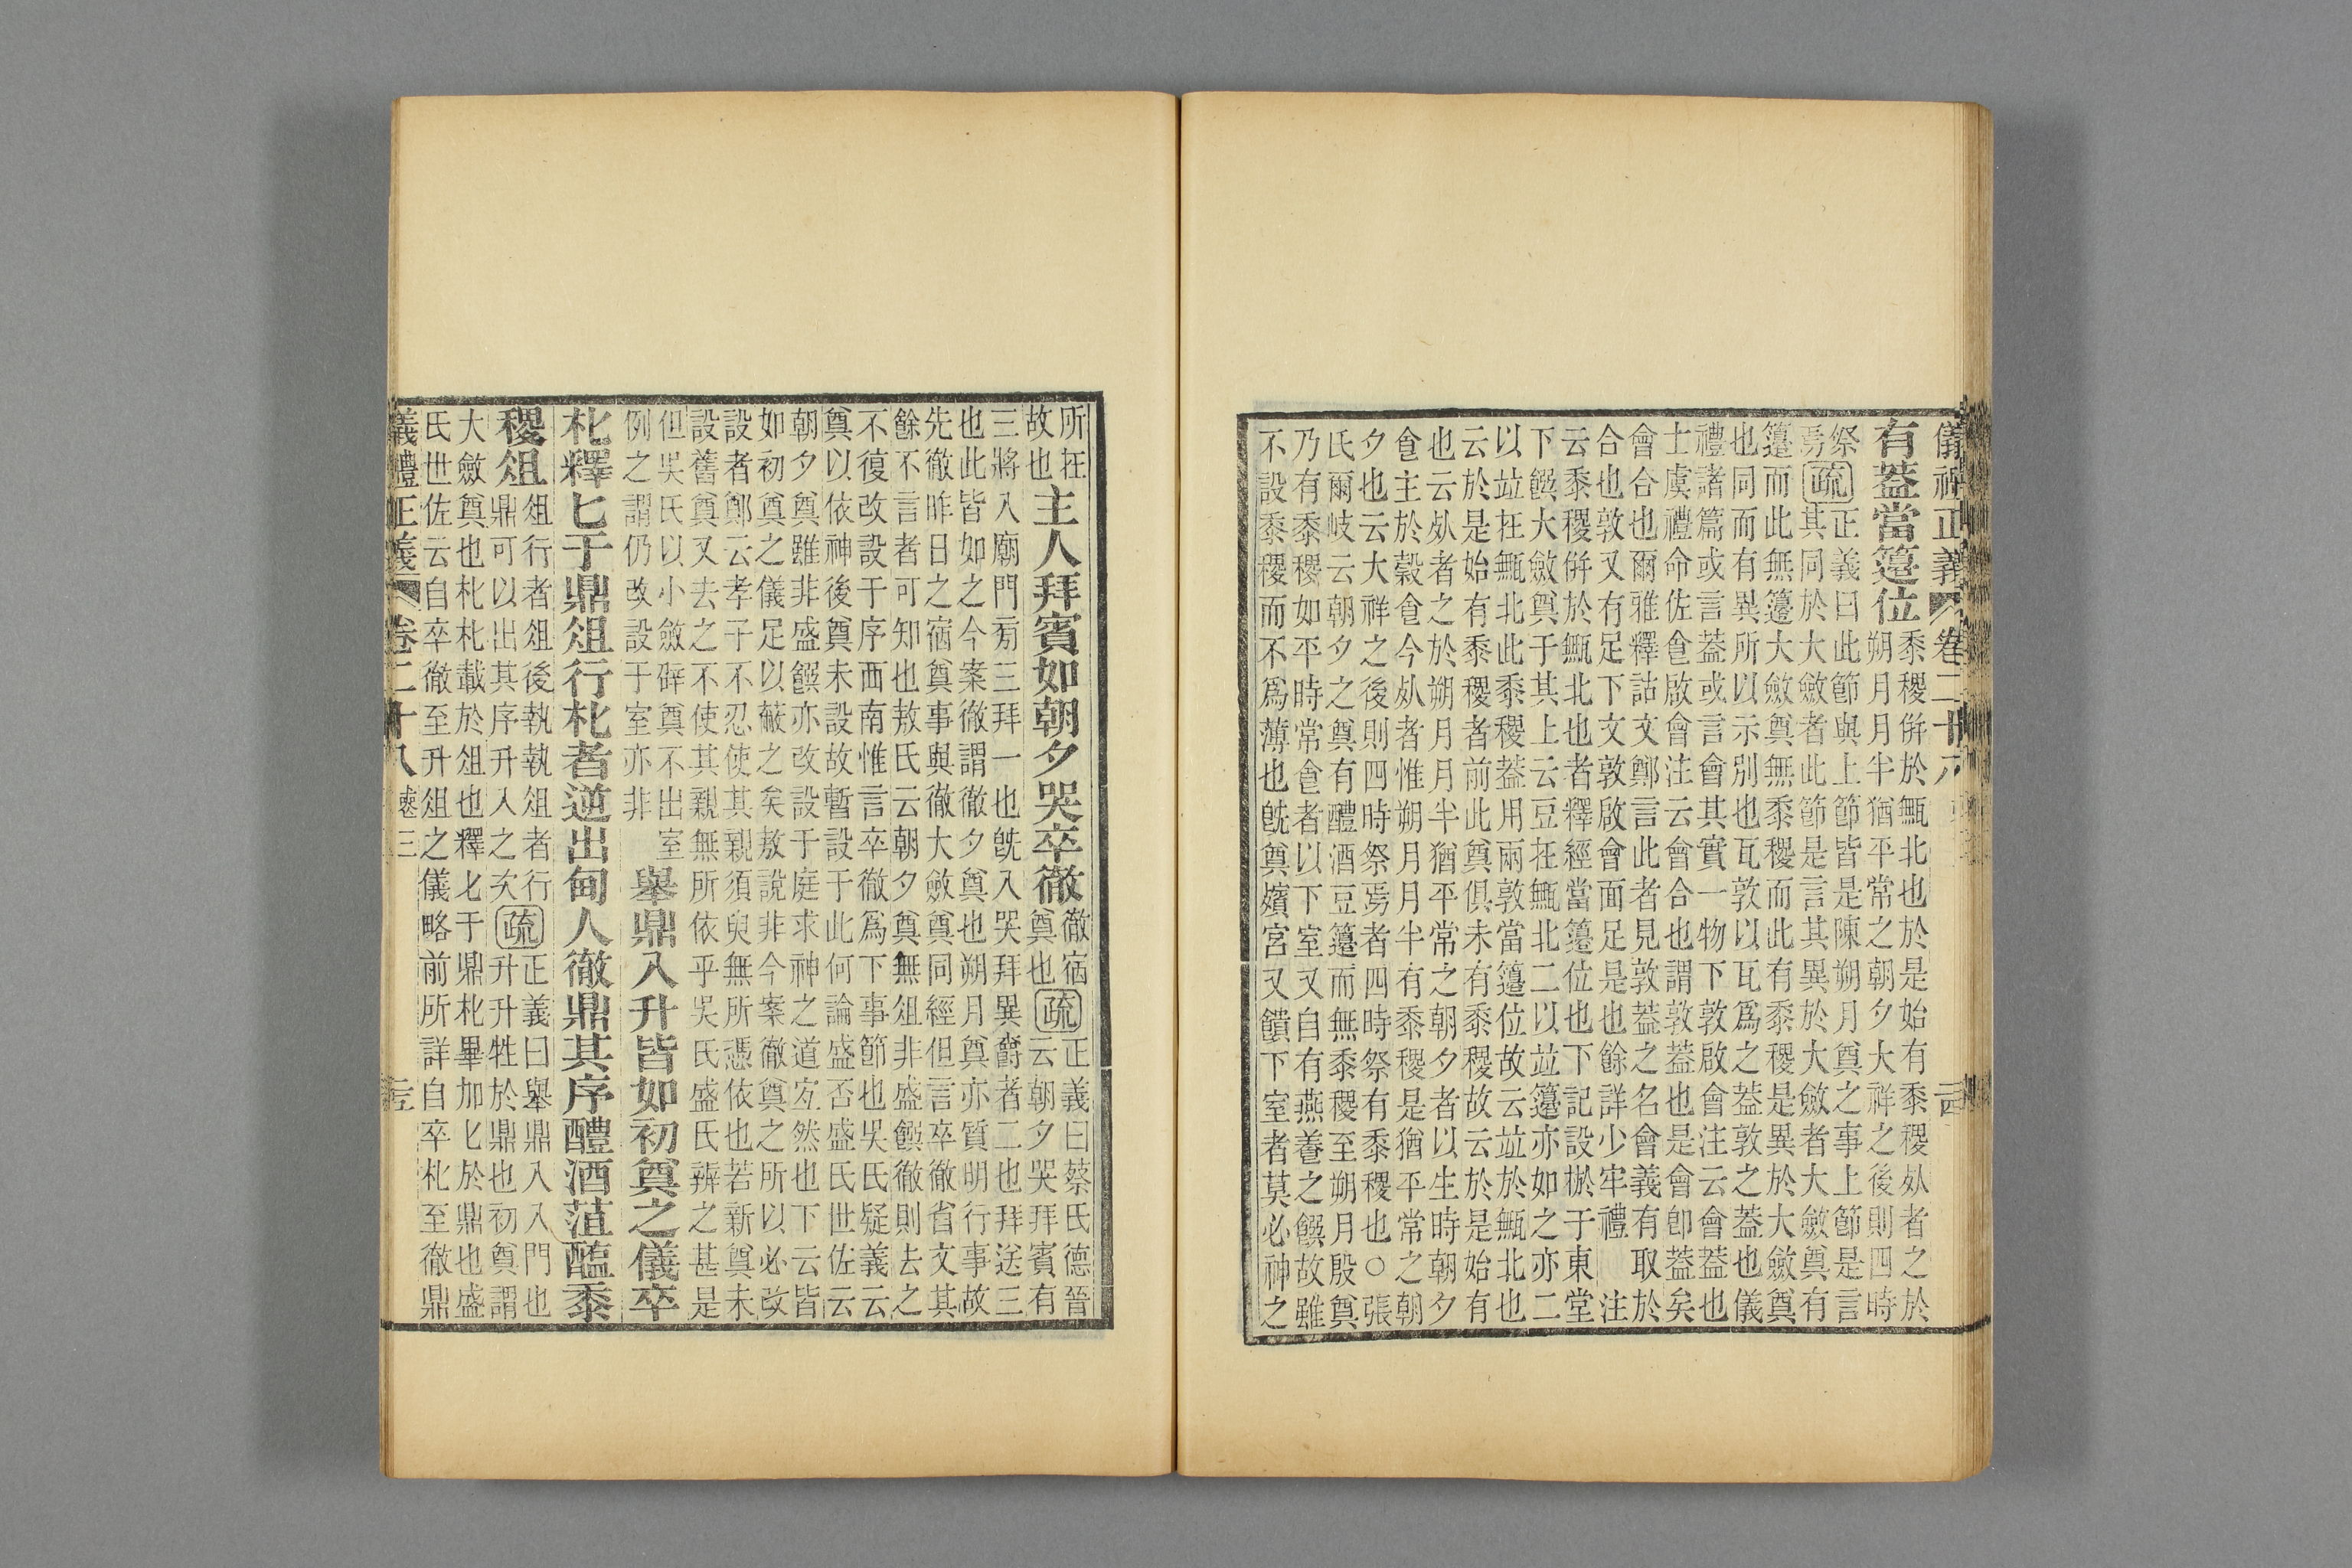 儀禮正義 卷二十八
有蓋當籩位黍稷併於甒北也於是始有黍稷死者之於
朔月月半猶平常之朝夕大祥之後則四時
祭
焉疏正義曰此節與上節皆是陳朔月奠之事上節是言
其同於大斂者此節是言其異於大斂者大斂奠有
籩而此無籩大斂奠無黍稷而此有黍稷是異於大斂奠
也同而有異所以示別也瓦敦以瓦爲之蓋敦之蓋也儀
禮諸篇或言蓋或言會其實一物下敦啟會注云會蓋也
士虞禮命佐食啟會注云會合也謂敦蓋也是會卽蓋矣
會合也爾雅釋詁文鄭言此者見敦蓋之名會義有取於
合也敦又有足下文敦啟會面足是也餘詳少牢禮 注
云黍稷併於甒北也者釋經當籩位也下記設棜于東堂
下饌大斂奠于其上云豆在甒北二以竝籩亦如之亦二
以竝在甒北此黍稷蓋用兩敦當籩位故云竝於甒北也
云於是始有黍稷者前此奠俱未有黍稷故云於是始有
也云死者之於朔月月半猶平常之朝夕者以生時朝夕
食主於穀食今死者惟朔月月半有黍稷是猶平常之朝
夕也云大祥之後則四時祭焉者四時祭有黍稷也○張
氏爾岐云朝夕之奠有醴酒豆籩而無黍稷至朔月殷奠
乃有黍稷如平時常食者以下室又自有燕養之饌故雖
不設黍稷而不爲薄也旣奠殯宮又饋下室者莫必神之
所在
故也主人拜賓如朝夕哭卒徹徹宿
奠也疏正義曰蔡氏德晉
云朝夕哭拜賓有
三將入廟門旁三拜一也旣入哭拜異爵者二也拜送三
也此皆如之今案徹謂徹夕奠也朔月奠亦質明行事故
先徹昨日之宿奠事與徹大斂奠同經但言卒徹省文其
餘不言者可知也敖氏云朝夕奠無俎非盛饌徹則去之
不復改設于序西南惟言卒徹爲下事節也吳氏疑義云
奠以依神後奠未設故暫設于此何論盛否盛氏世佐云
朝夕奠雖非盛饌亦改設于庭求神之道宐然也下云皆
如初奠之儀足以蔽之矣敖說非今案徹奠之所以必改
設者鄭云孝子不忍使其親須臾無所憑依也若新奠未
設舊奠又去之不使其親無所依乎吳氏盛氏辨之甚是
但吳氏以小斂辟奠不出室
例之謂仍改設于室亦非舉鼎入升皆如初奠之儀卒
朼釋匕于鼎俎行朼者逆出甸人徹鼎其序醴酒菹醢黍
稷俎俎行者俎後執執俎者行
鼎可以出其序升入之次疏正義曰舉鼎入入門也
升升牲於鼎也初奠謂
大斂奠也朼朼載於俎也釋匕于鼎朼畢加匕於鼎也盛
氏世佐云自卒徹至升俎之儀略前所詳自卒朼至徹鼎
儀禮正義 卷二十八